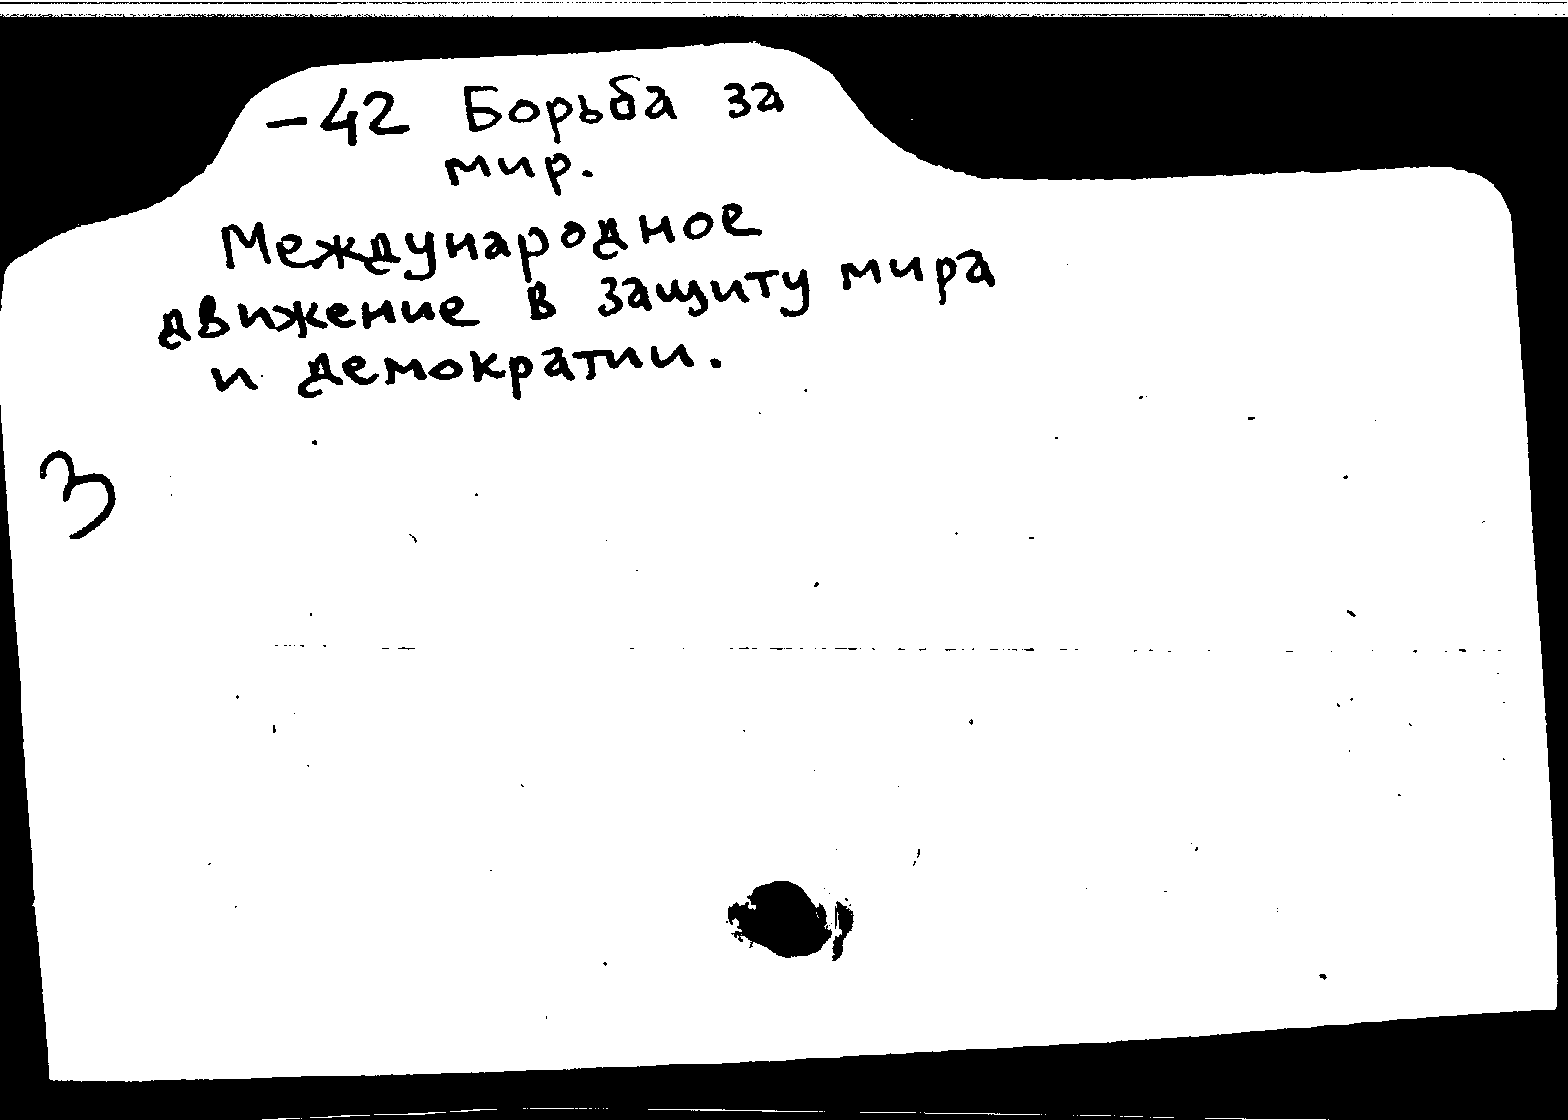 -42 Борьба за
мир.
Международное
движение в защиту мира
и демократии.
3